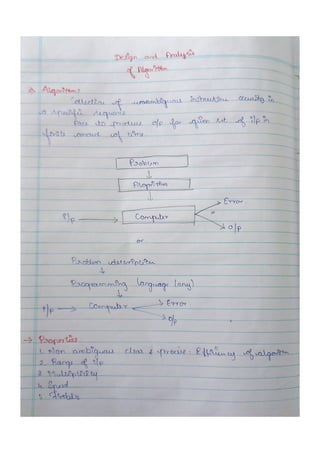 Design and Analysis
of Algorithm
Algorithm:
Collection of unambiguous instruction occuring in
a specific sequence
to produce o/p for given set of i/p in
finite amount of time
Problem
Algorithm
I/p Computer Error
O/p
or
Problem description
Programming language (any)
I/p Computer Error
O/p
→ Properties
1. Non ambiguous clear & precise. Efficiency of algorithm
2. Range of I/p
3. Multiplicity
4. Speed
5.